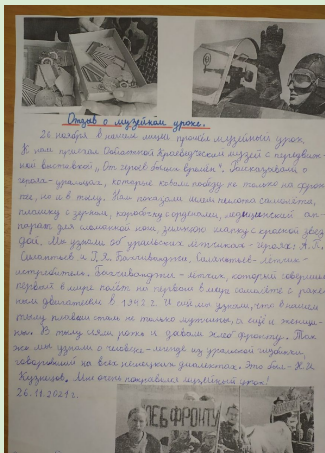 Отзыв о музейном уроке.
26 ноября в нашем лицее прошёл музейный урок.
К нам приехал Областной Краеведческий музей с передвиж-
ной выставкой „От героев былых времён". Рассказывали о
героях-уральцах, которые ковали победу не только на фрон-
те, но и в тылу. Нам показали шлем пилота самолёта,
с зерном, коробочку с орденами, ап-
парат для сломанной ноги, зимнюю шапку с красной звез-
дой. Мы узнали об уральских лётчиках-героях: А.
и Г.Я. Бахчиванджи. - лётчик-
истребитель, Бахчиванджи - лётчик, который совершил
первый в мире полёт на первом в мире самолёте с ракет-
ным двигателем в 1942 г. И ещё мы узнали, что в нашем
тылу плавили стали не только мужчины, а ещё и женщи-
ны. В тылу сеяли поля и давали хлеб фронту. Так
же мы узнали о человеке-легенде из уральской глубинки,
говорившем на всех немецких диалектах. Это был - Н.И.
Кузнецов. Мы очень понравился музейный урок!
26.11.2021 г.
ХЛЕБ ФРОНТУ